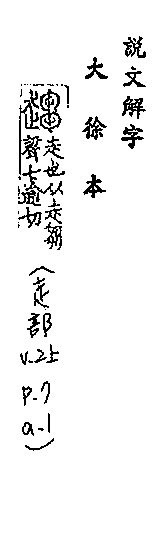 説文解字
大徐本
趨 走也从走芻
聲七逾切
(走部
v.2上
p.7
a.1)